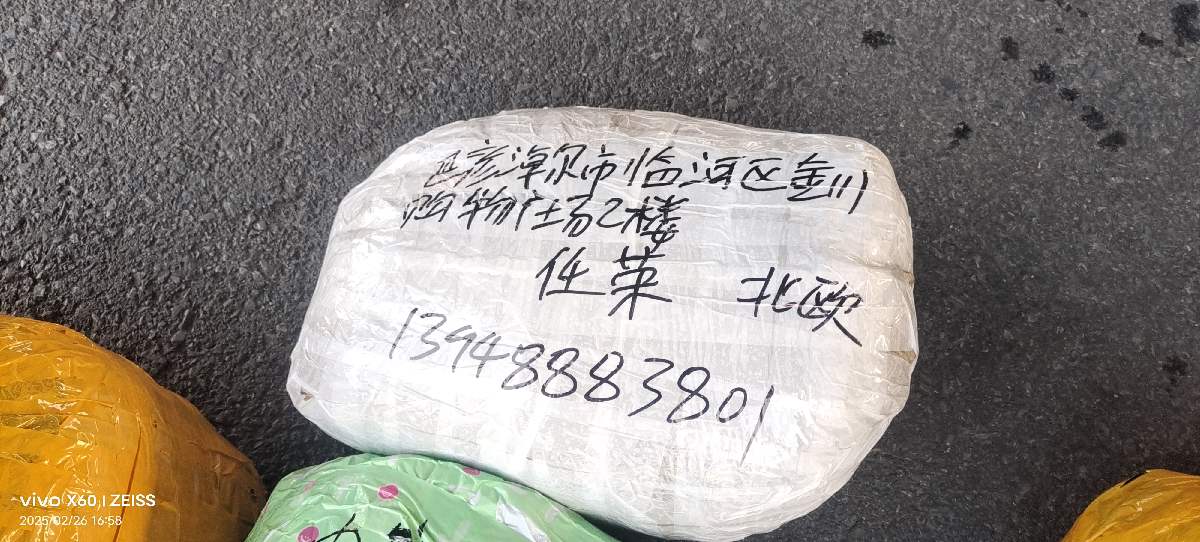 巴彦淖尔市临河区金川
购物广场2楼
任莱 北欧
13948883801
vivo X60 | ZEISS
2025/02/26 16:58